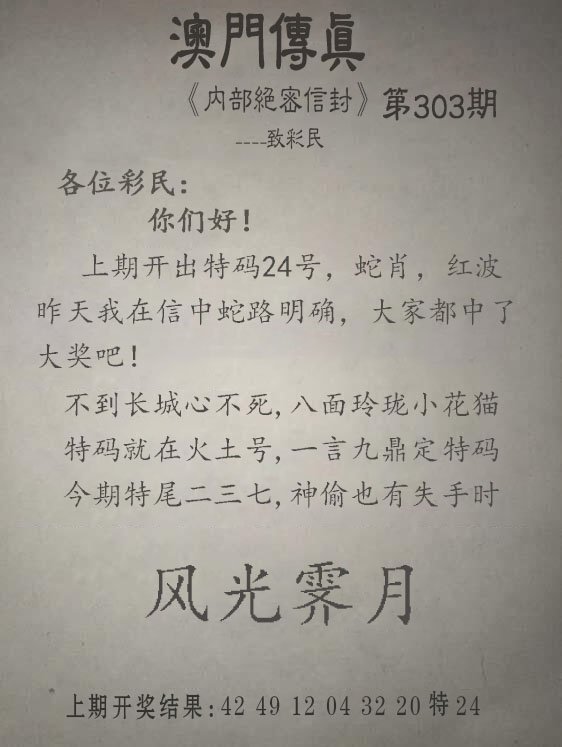 澳門傳眞
《内部絕密信封》第303期
----致彩民
各位彩民：
你们好！
上期开出特码24号，蛇肖，红波
昨天我在信中蛇路明确，大家都中了
大奖吧！
不到长城心不死,八面玲珑小花猫
特码就在火土号,一言九鼎定特码
今期特尾二三七,神偷也有失手时
风光霁月
上期开奖结果:42 49 12 04 32 20 特 24